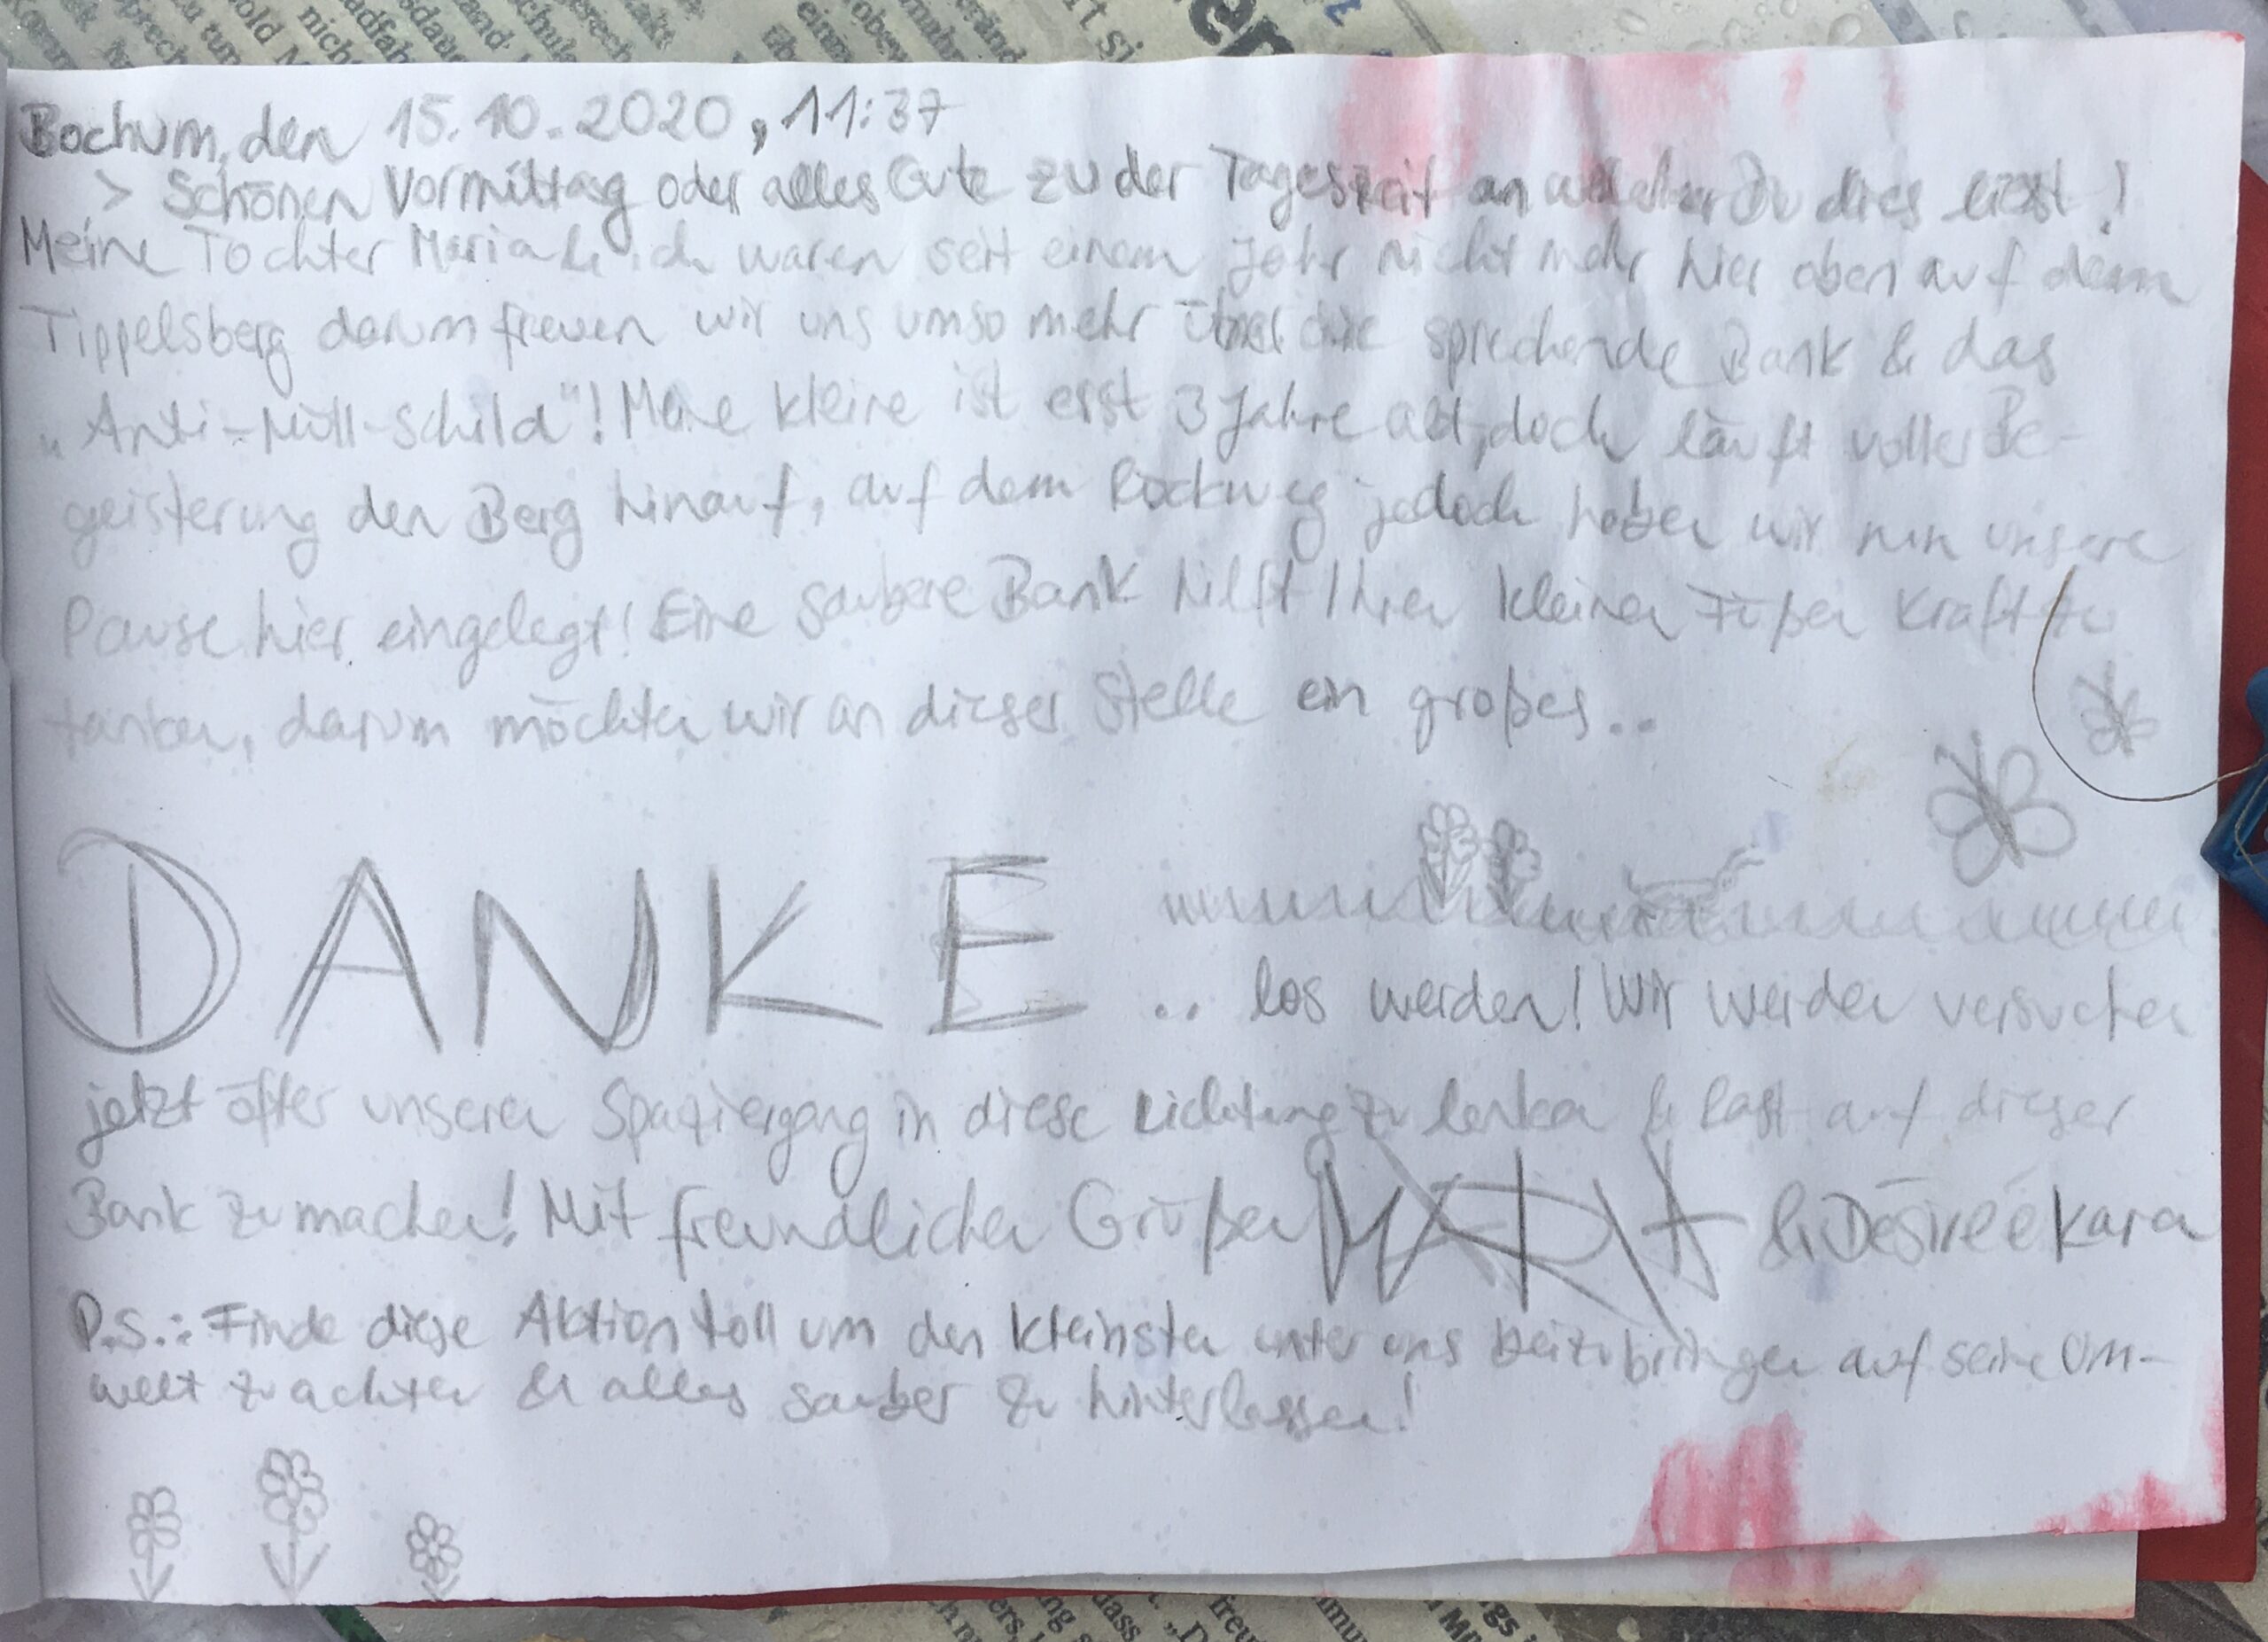 Bochum, den 15.10.2020, 11:37
> Schönen Vormittag oder alles Gute zu der Tageszeit an welcher Du dies liest!
Meine Tochter Maria & ich waren seit einem Jahr nicht mehr hier oben auf dem
Tippelsberg darum freuen wir uns umso mehr über die sprechende Bank & das
„Anti-Müll-Schild"! Meine kleine ist erst 3 Jahre alt, doch läuft voller Be-
geisterung den Berg hinauf, auf dem Rückweg jedoch haben wir nun unsere
Pause hier eingelegt! Eine saubere Bank hilft Ihren kleinen Füßen Kraft zu
tanken, darum möchten wir an dieser Stelle ein großes..
DANKE
.. los werden! Wir werden versuchen
jetzt öfter unseren Spaziergang in diese Richtung zu lenken & Rast auf dieser
Bank zu machen! Mit freundlichen Grüßen MARIA & Désireé Kara
P.S.: Finde diese Aktion toll um den kleinsten unter uns beizubringen auf seine Um-
welt zu achten & alles sauber zu hinterlassen!